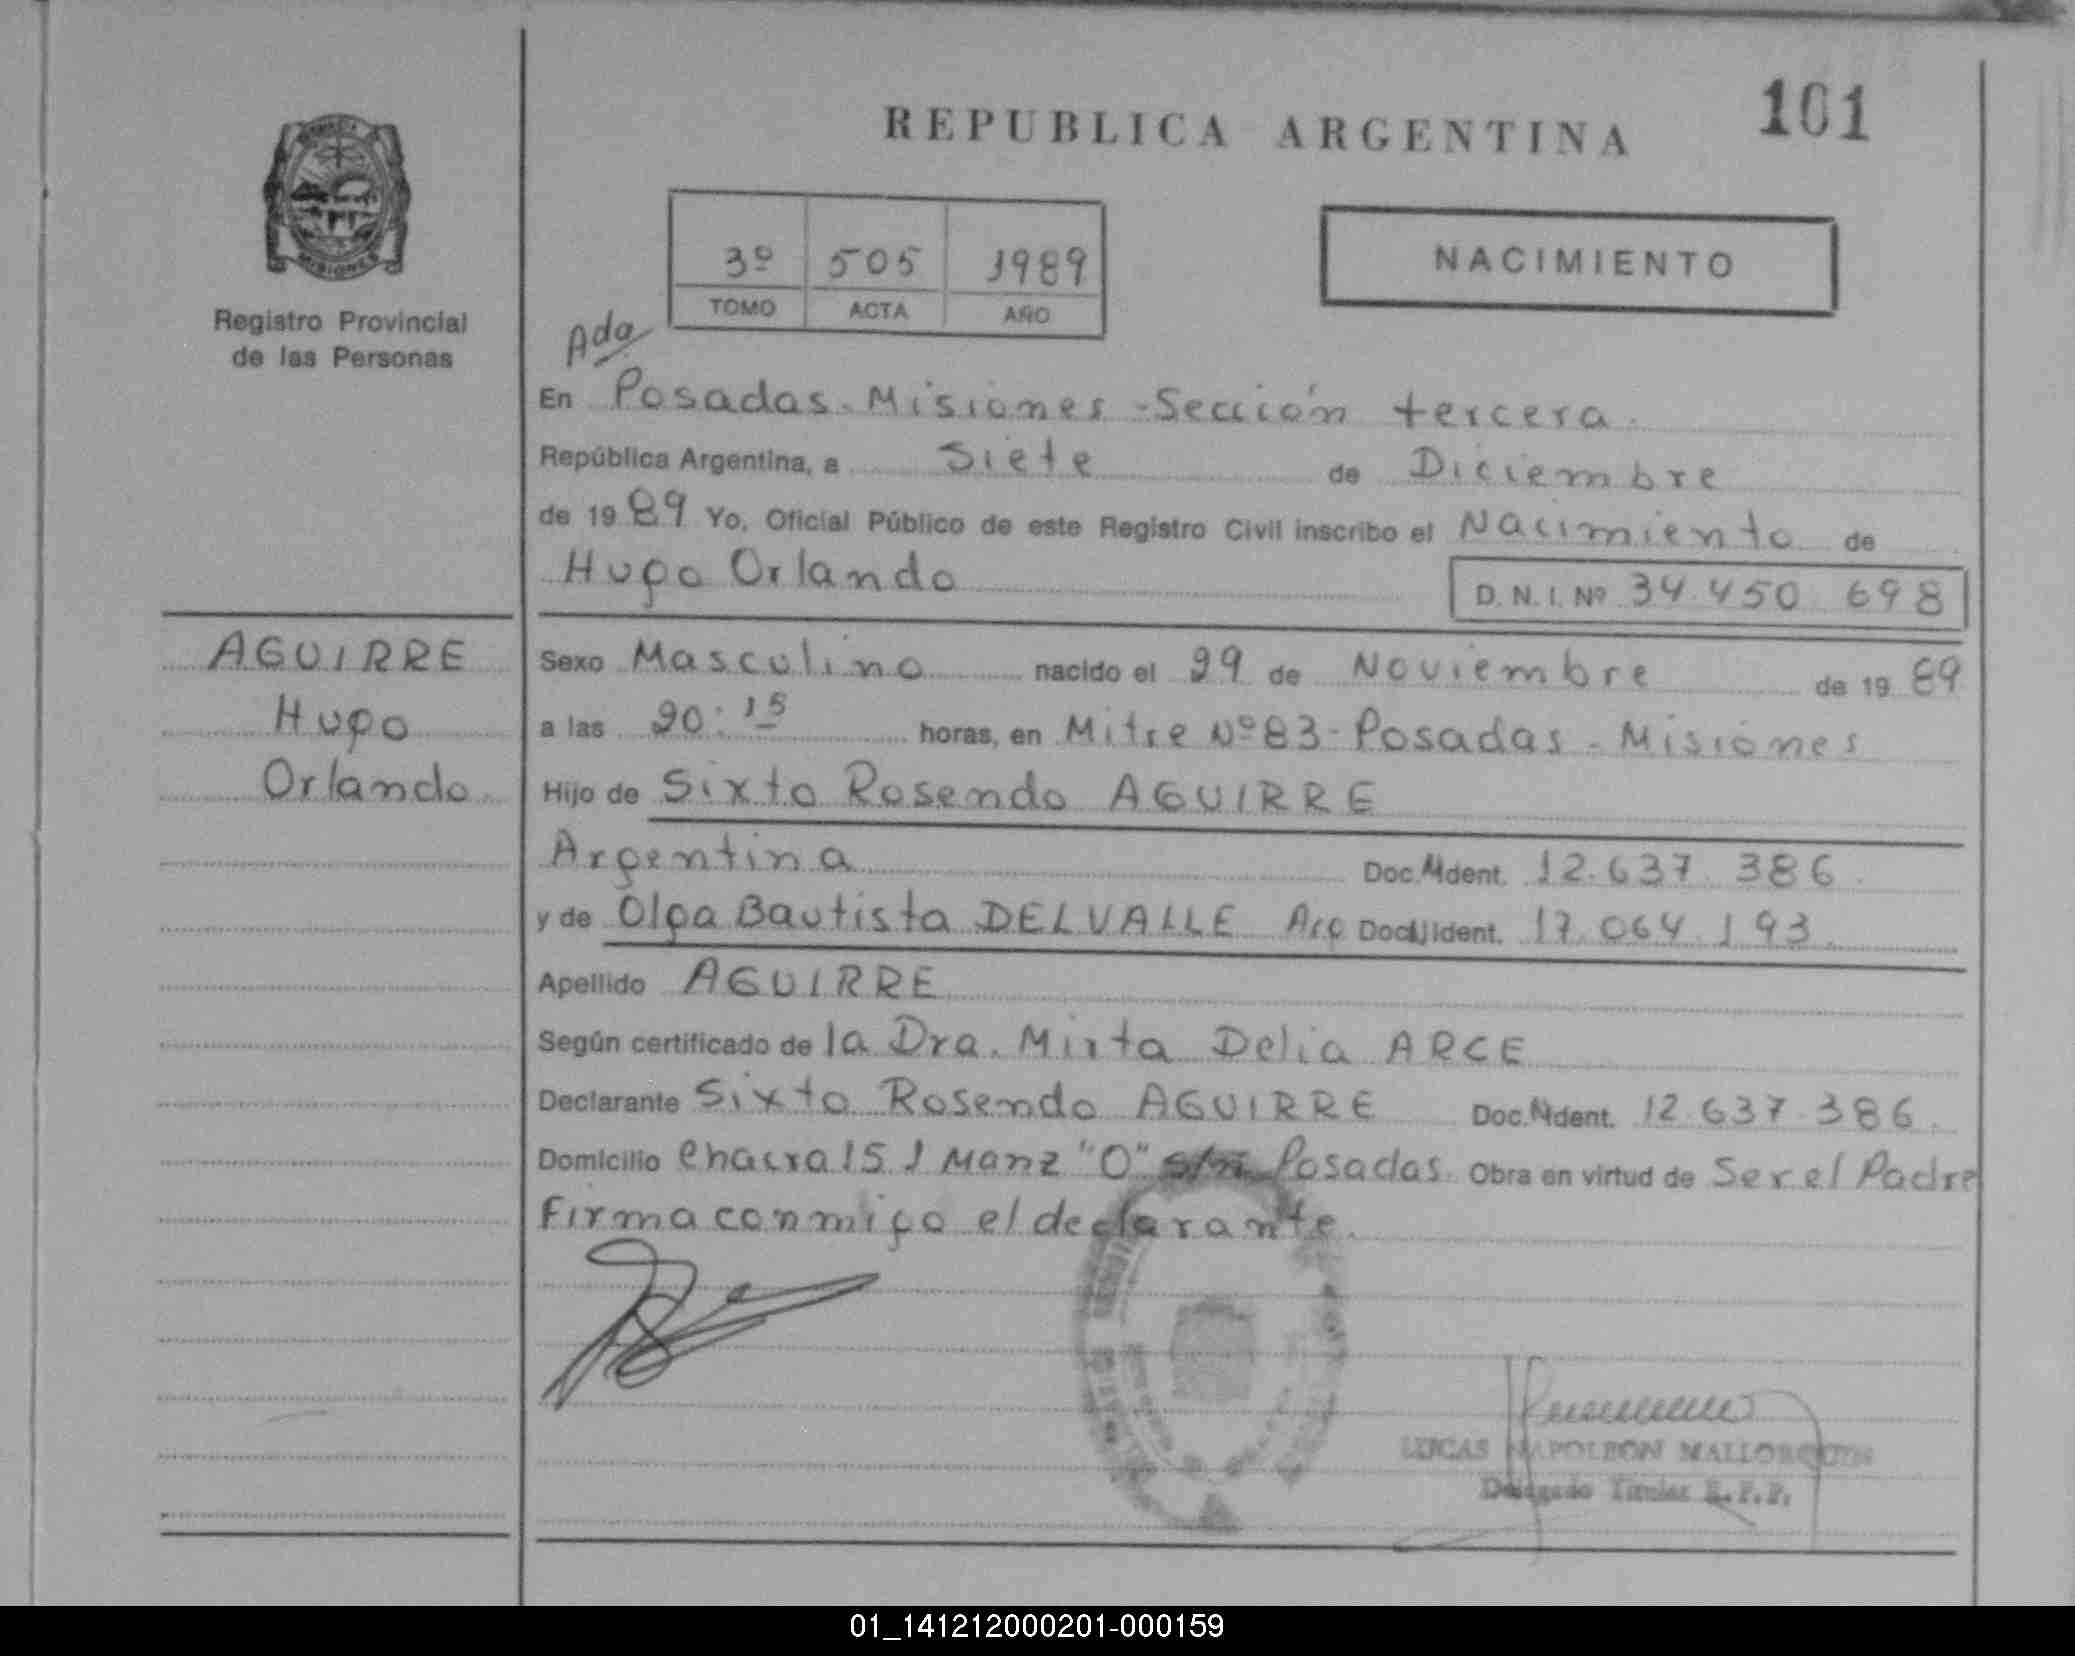 101
REPUBLICA ARGENTINA
3º 505 1989
TOMO ACTA AÑO
NACIMIENTO
MISIONES
Registro Provincial
de las Personas
Ada
En Posadas - Misiones - Sección tercera.
República Argentina, a Siete de Diciembre
de 1989 Yo, Oficial Público de este Registro Civil inscribo el Nacimiento de
Hugo Orlando D.N.I. Nº 34.450.698
AGUIRRE
Hugo
Orlando
Sexo Masculino nacido el 29 de Noviembre de 1989
a las 20:15 horas, en Mitre Nº 83 - Posadas - Misiones
Hijo de Sixto Rosendo AGUIRRE
Argentina Doc. Ident. 12.637.386.
y de Olga Bautista DELVALLE Arg Doc. Ident. 17.064.193.
Apellido AGUIRRE
Según certificado de la Dra. Mirta Delia ARCE
Declarante Sixto Rosendo AGUIRRE Doc. Ident. 12.637.386.
Domicilio Chacra 151 Manz "O" s/n Posadas. Obra en virtud de Ser el Padre
Firma conmigo el declarante.
LUCAS NAPOLEON MALLORQUIN
Delegado Titular R.P.P.
01_141212000201-000159